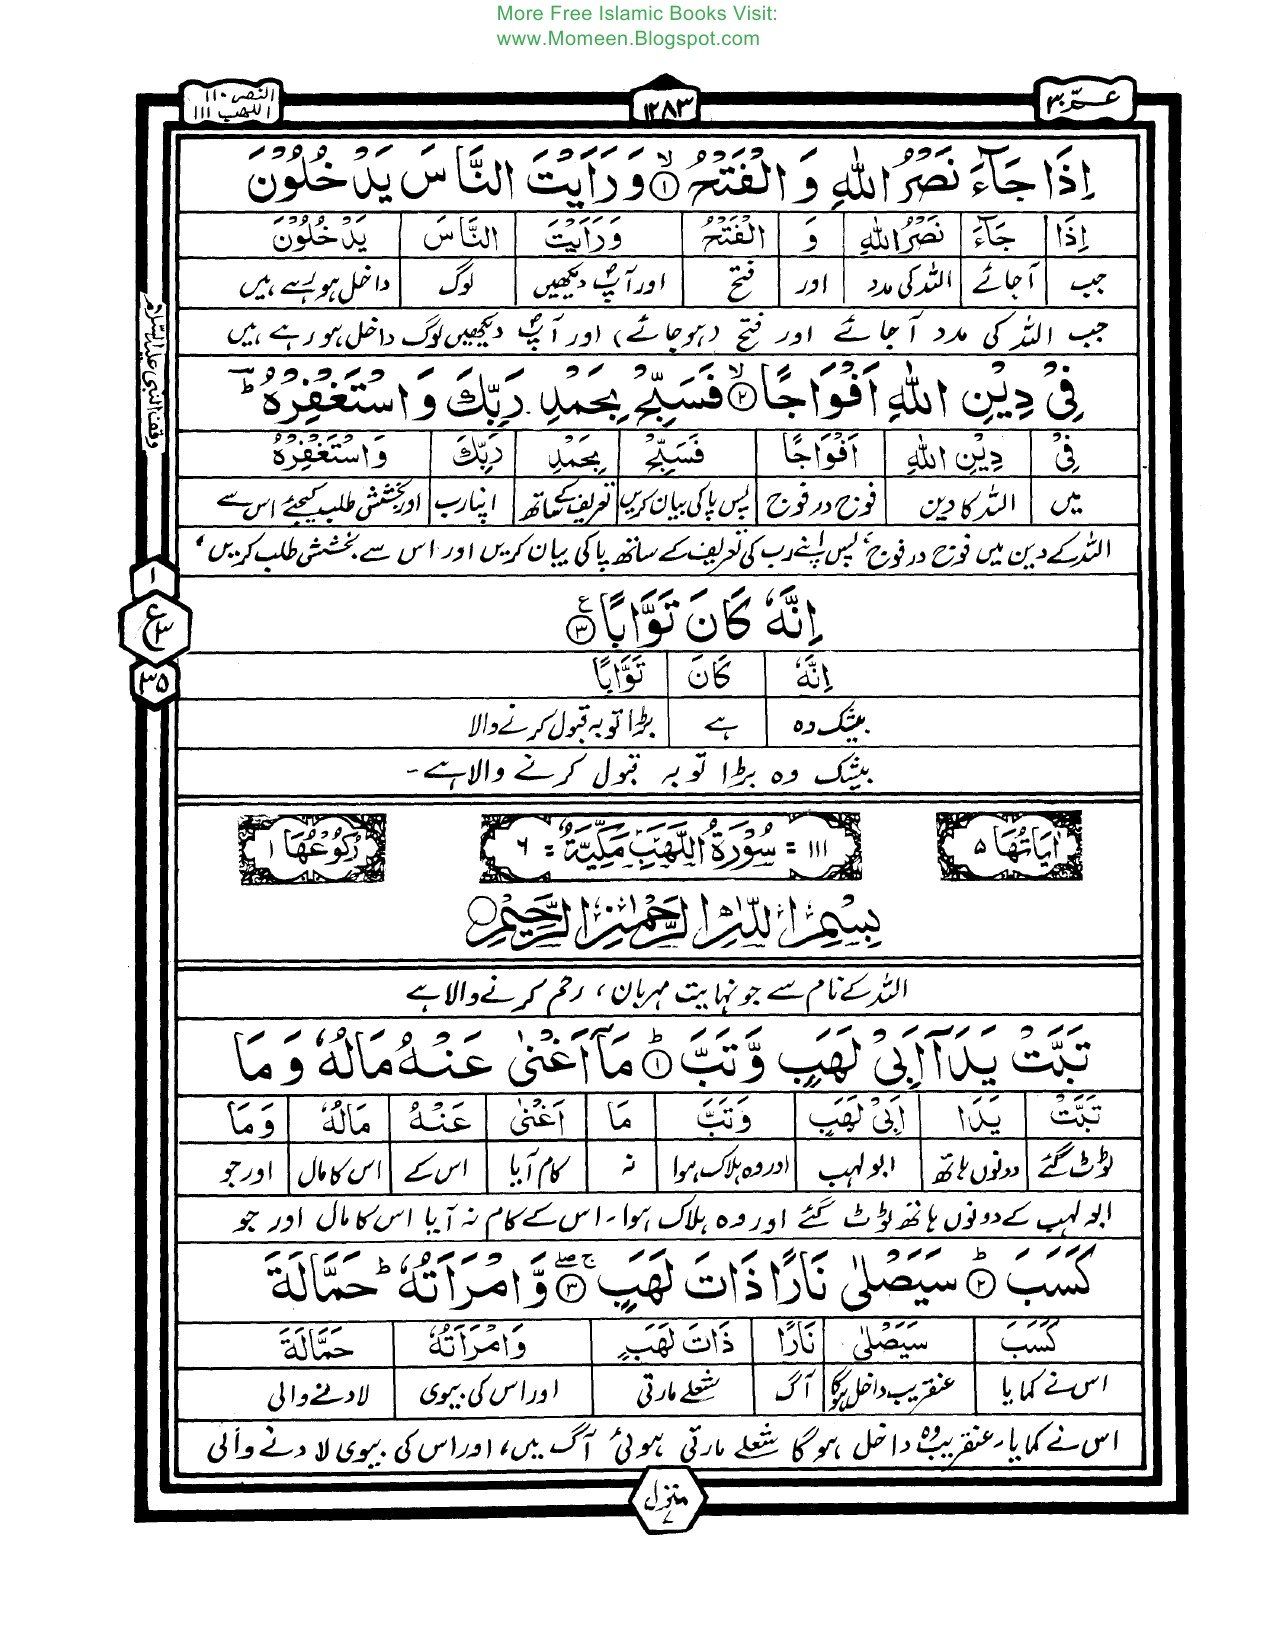 More Free Islamic Books Visit:
www.Momeen.Blogspot.com
عمّ ۳۰
۱۲۸۳
النصر ۱۱۰
اللهب ۱۱۱
اِذَا جَآءَ نَصْرُ اللّٰهِ وَ الْفَتْحُ ۙ﴿۱﴾ وَ رَاَیْتَ النَّاسَ یَدْخُلُوْنَ
اِذَا جَآءَ نَصْرُ اللّٰهِ وَ الْفَتْحُ وَرَاَیْتَ النَّاسَ یَدْخُلُوْنَ
جب آجائے اللہ کی مدد اور فتح اور آپؐ دیکھیں لوگ داخل ہو رہے ہیں
جب اللہ کی مدد آجائے اور فتح (ہو جائے) اور آپؐ دیکھیں لوگ داخل ہو رہے ہیں
فِیْ دِیْنِ اللّٰهِ اَفْوَاجًا ۙ﴿۲﴾ فَسَبِّحْ بِحَمْدِ رَبِّكَ وَ اسْتَغْفِرْهُ ؕ
فِیْ دِیْنِ اللّٰهِ اَفْوَاجًا فَسَبِّحْ بِحَمْدِ رَبِّكَ وَاسْتَغْفِرْهُ
میں اللہ کا دین فوج در فوج پس پاکی بیان کریں تعریف کے ساتھ اپنا رب اور بخشش طلب کیجئے اس سے
اللہ کے دین میں فوج در فوج، پس اپنے رب کی تعریف کے ساتھ پاکی بیان کریں اور اس سے بخشش طلب کریں،
اِنَّهٗ كَانَ تَوَّابًا ﴿۳﴾ ع
اِنَّهٗ كَانَ تَوَّابًا
بیشک وہ ہے بڑا توبہ قبول کرنے والا
بیشک وہ بڑا توبہ قبول کرنے والا ہے۔
وقف النبی علیہ السلام
۱
ع ۳
۳۵
اٰیَاتُهَا ۵
۱۱۱ = سُوْرَةُ اللَّهَبِ مَكِّیَّةٌ = ۶
رُكُوْعُهَا ۱
بِسْمِ اللّٰهِ الرَّحْمٰنِ الرَّحِیْمِ
اللہ کے نام سے جو نہایت مہربان، رحم کرنے والا ہے
تَبَّتْ یَدَاۤ اَبِیْ لَهَبٍ وَّ تَبَّ ؕ﴿۱﴾ مَاۤ اَغْنٰی عَنْهُ مَالُهٗ وَ مَا
تَبَّتْ یَدَا اَبِیْ لَهَبٍ وَتَبَّ مَا اَغْنٰی عَنْهُ مَالُهٗ وَمَا
ٹوٹ گئے دونوں ہاتھ ابو لہب اور وہ ہلاک ہوا نہ کام آیا اس کے اس کا مال اور جو
ابو لہب کے دونوں ہاتھ ٹوٹ گئے اور وہ ہلاک ہوا۔ اس کے کام نہ آیا اس کا مال اور جو
كَسَبَ ؕ﴿۲﴾ سَیَصْلٰی نَارًا ذَاتَ لَهَبٍ ۚۖ﴿۳﴾ وَّ امْرَاَتُهٗ ؕ حَمَّالَةَ
كَسَبَ سَیَصْلٰی نَارًا ذَاتَ لَهَبٍ وَامْرَاَتُهٗ حَمَّالَةَ
اس نے کمایا عنقریب داخل ہوگا آگ شعلے مارتی اور اس کی بیوی لادنے والی
اس نے کمایا۔ عنقریب وہ داخل ہوگا شعلے مارتی ہوئی آگ میں، اور اس کی بیوی لادنے والی
منزل ۷